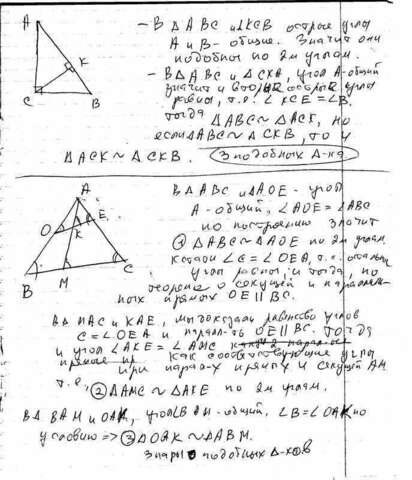 A
K
C
B
- В Δ ABC и ΔKCB острые углы
A и B - общие. Значит они
подобны по 2м углам.
- В Δ ABC и ΔCKA, угол A-общий
значит и вторые острые углы
равны, т.е. ∠KCE = ∠B.
тогда
ΔABC ~ ΔACK, но
если ΔABC ~ ΔCKB, то и
ΔACK ~ ΔCKB. 3 подобных Δ-ка
A
O
E
K
B
M
C
В Δ ABC и ΔAOE - угол
A-общий, ∠AOE = ∠ABC
по построению значит
① ΔABC ~ ΔAOE по 2м углам
∠C = ∠OEA, т.е.
углы равны, и тогда, по
теореме о секущей и параллель-
ных прямых OE || BC.
В Δ MAC и KAE, мы доказали равенство углов
C = ∠OEA и паралл-ть OE || BC. тогда
и угол ∠AKE = ∠AMC
как соответствующие углы
при парал-х прямых и секущей AM
т.е. ② ΔAMC ~ ΔAKE по 2м углам.
В Δ BAM и OAK, угол - общий. ∠B = ∠OAK по
условию => ③ ΔOAK ~ ΔABM.
3 пары подобных Δ-ков